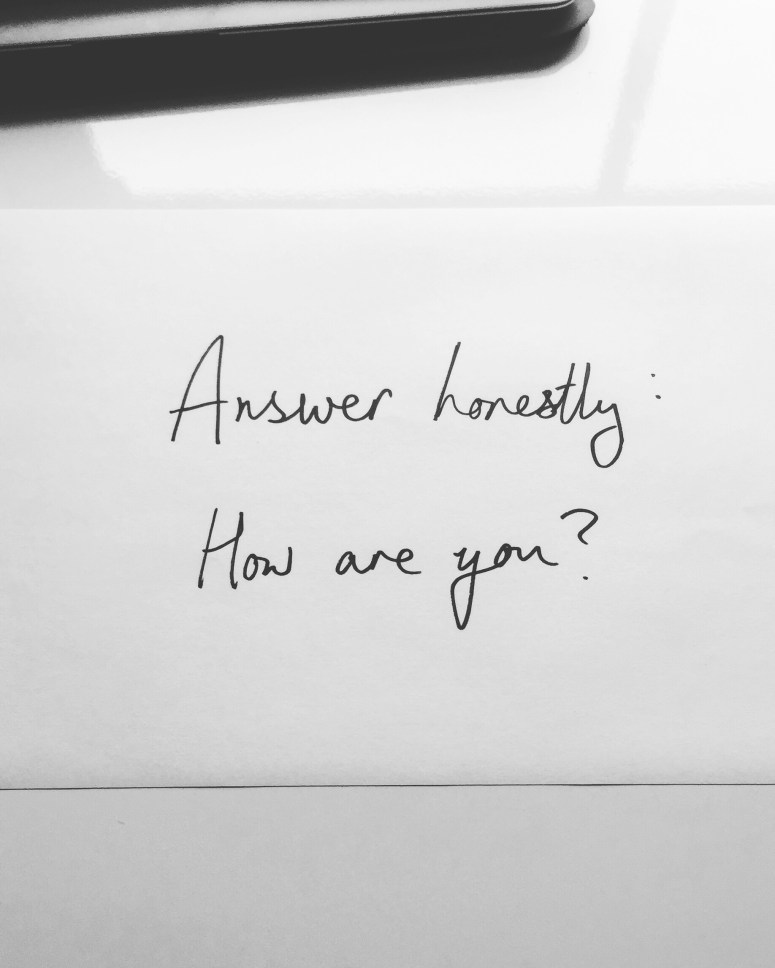 Answer honestly:
How are you?